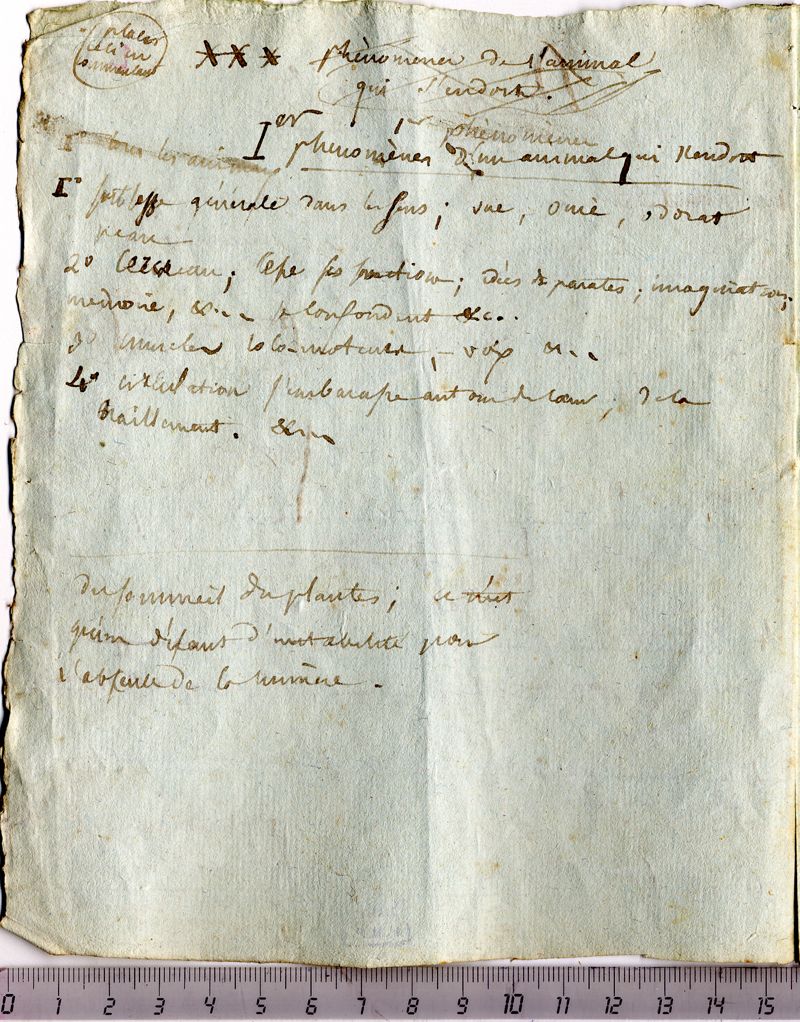 placer
ceci en
XXX phènomènes de l'animal
qui s'endort.
Ier 1er phènomènes
1° tous les animaux
phènomènes d'un animal qui s'endort
1° foiblesse générale dans les sens; vue, ouïe, odorat
peau
2° Cerveau; cesse ses fonctions; idées disparates; imagination,
mémoire, &... se confondent &c..
3° muscles locomoteurs, - voix &..
4° circulation s'embarasse autour du cœur; de la
Baillement. &...
du sommeil des plantes; ce n'est
qu'un défaut d'irritabilité par
l'absence de la lumière.
0 1 2 3 4 5 6 7 8 9 10 11 12 13 14 15